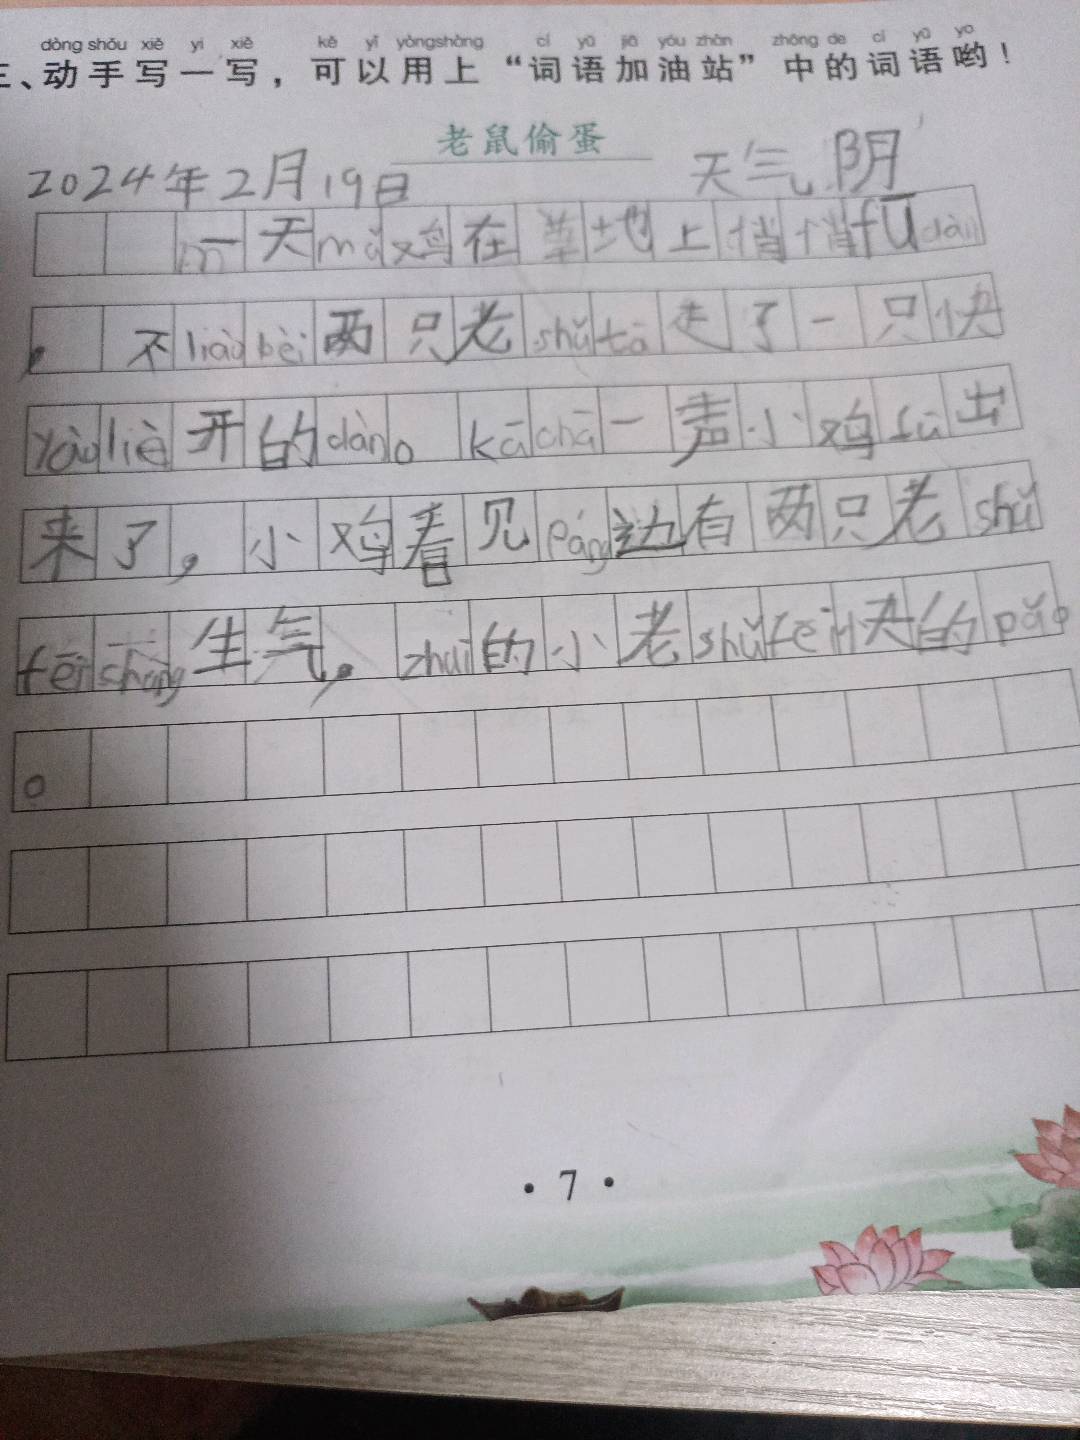 dòng shǒu xiě yi xiě kě yǐ yòngshàng cí yǔ jiā yóu zhàn zhōng de cí yǔ yo
三、动手写一写，可以用上“词语加油站”中的词语哟！
老鼠偷蛋
2024年2月19日 天气阴
一天mǔ鸡在草地上悄悄fū dàn
， 不liào bèi两只老shǔ tā走了一只快
yào liè开的dàn。kā chā一声小鸡fū出
来了，小鸡看见páng边有两只老shǔ
fēi cháng生气，zhuī的小老shǔ fēi快的pǎo
。
·7·